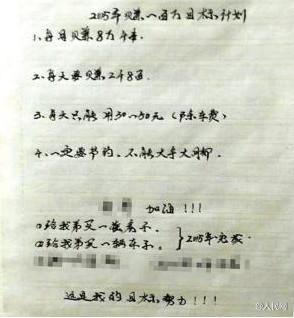 2015年只赚一百万目标计划
1、每月只赚8万4千.
2、每天要只赚2千8百.
3、每天只能用30~50元（除车费）
4、一定要节约，不能大手大脚.
加油！！！
①给我弟买一套房子.
②给我弟买一辆车子.
}2015年完成.
这是我的目标努力！！！
@人民网